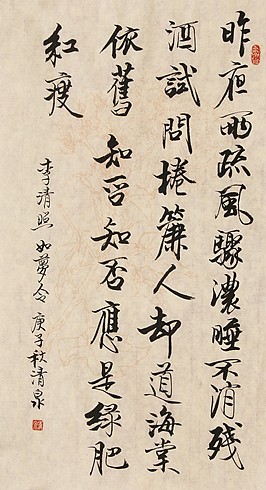 昨夜雨疏風驟濃睡不消殘
酒試問捲簾人却道海棠
依舊知否知否應是綠肥
紅瘦
李清照如夢令庚子秋清泉